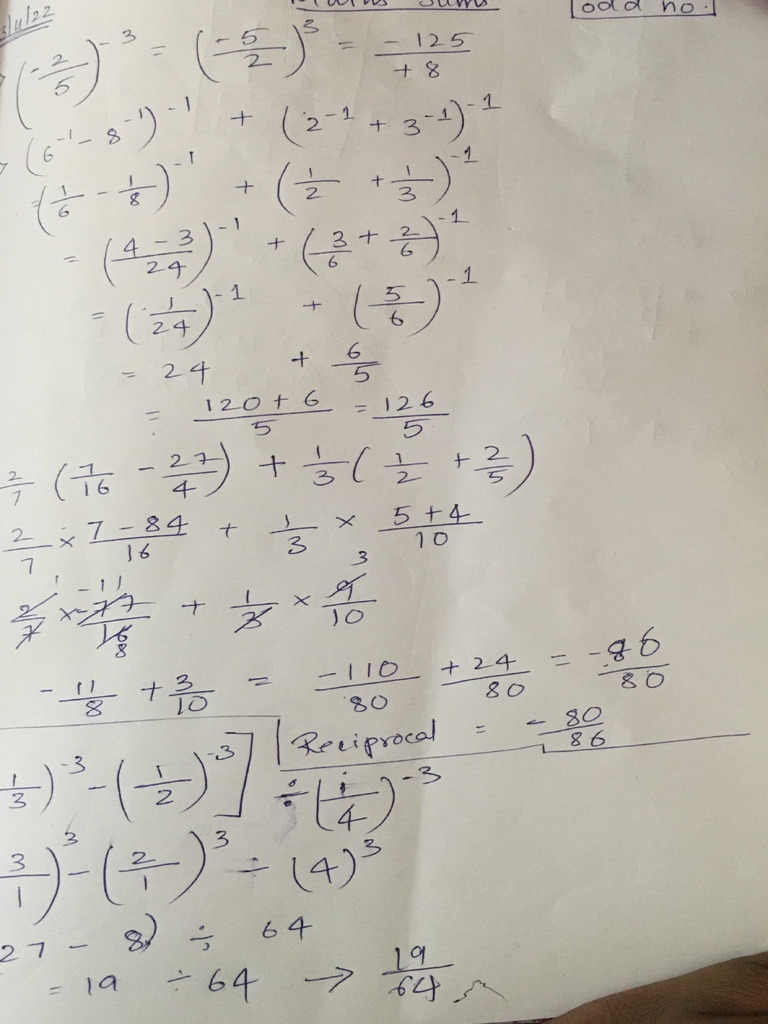 3/11/22 Maths Sums odd no.
(-2/5)^-3 = (-5/2)^3 = -125/+8
(6^-1 - 8^-1)^-1 + (2^-1 + 3^-1)^-1
= (1/6 - 1/8)^-1 + (1/2 + 1/3)^-1
= (4 - 3/24)^-1 + (3/6 + 2/6)^-1
= (1/24)^-1 + (5/6)^-1
= 24 + 6/5
= 120 + 6/5 = 126/5
2/7 (7/16 - 27/4) + 1/3 (1/2 + 2/5)
2/7 × 7 - 84/16 + 1/3 × 5 + 4/10
2/7 × -77/16 + 1/3 × 9/10
1 -11 8 3
-11/8 + 3/10 = -110/80 + 24/80 = -86/80
Reciprocal = -80/86
1/3)^-3 - (1/2)^-3] ÷ (1/4)^-3
3/1)^3 - (2/1)^3 ÷ (4)^3
27 - 8) ÷ 64
= 19 ÷ 64 → 19/64